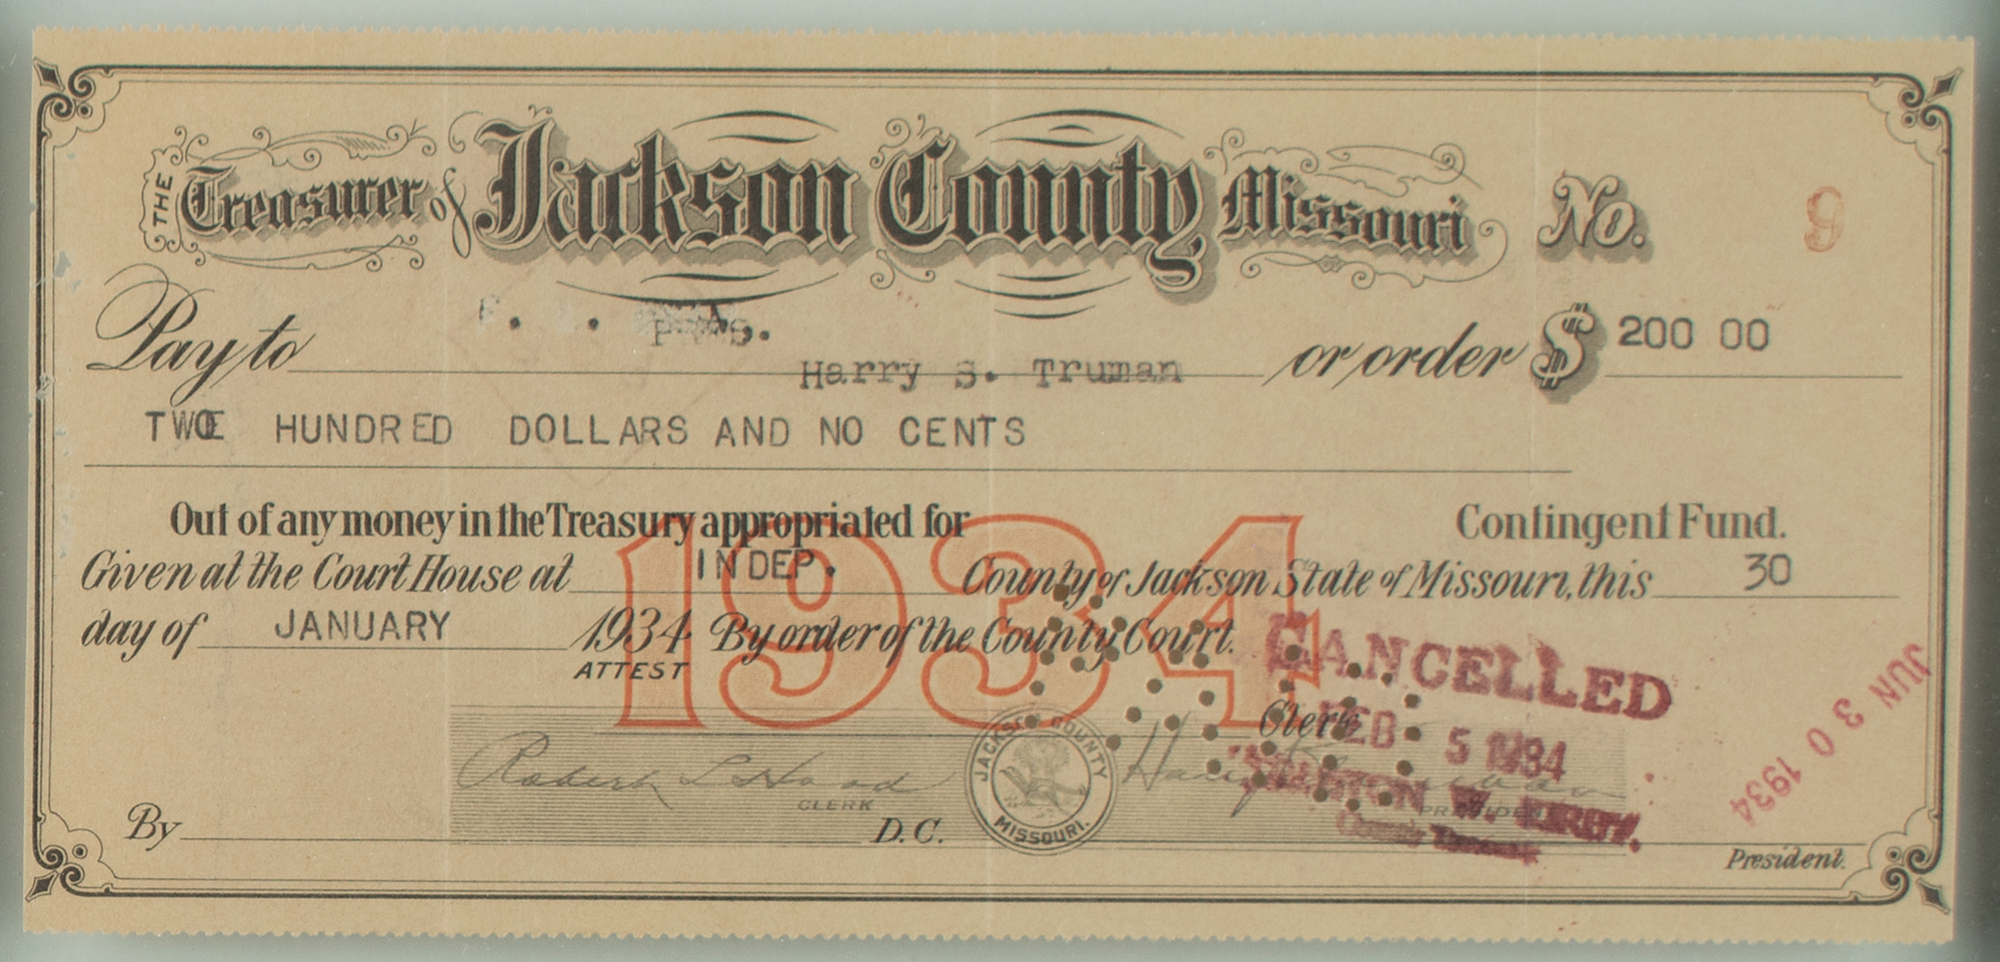 THE Treasurer of Jackson County Missouri No. 9
Pay to Harry S. Truman or order $ 200 00
TWO HUNDRED DOLLARS AND NO CENTS
Out of any money in the Treasury appropriated for Contingent Fund.
Given at the Court House at INDEP. County of Jackson State of Missouri, this 30
day of JANUARY 1934 By order of the County Court.
1934
ATTEST
CANCELLED
FEB 5 1934
JUN 30 1934
Clerk
Robert L Hood
CLERK
JACKSON COUNTY
MISSOURI.
W. KIRBY.
County
By D.C.
President.